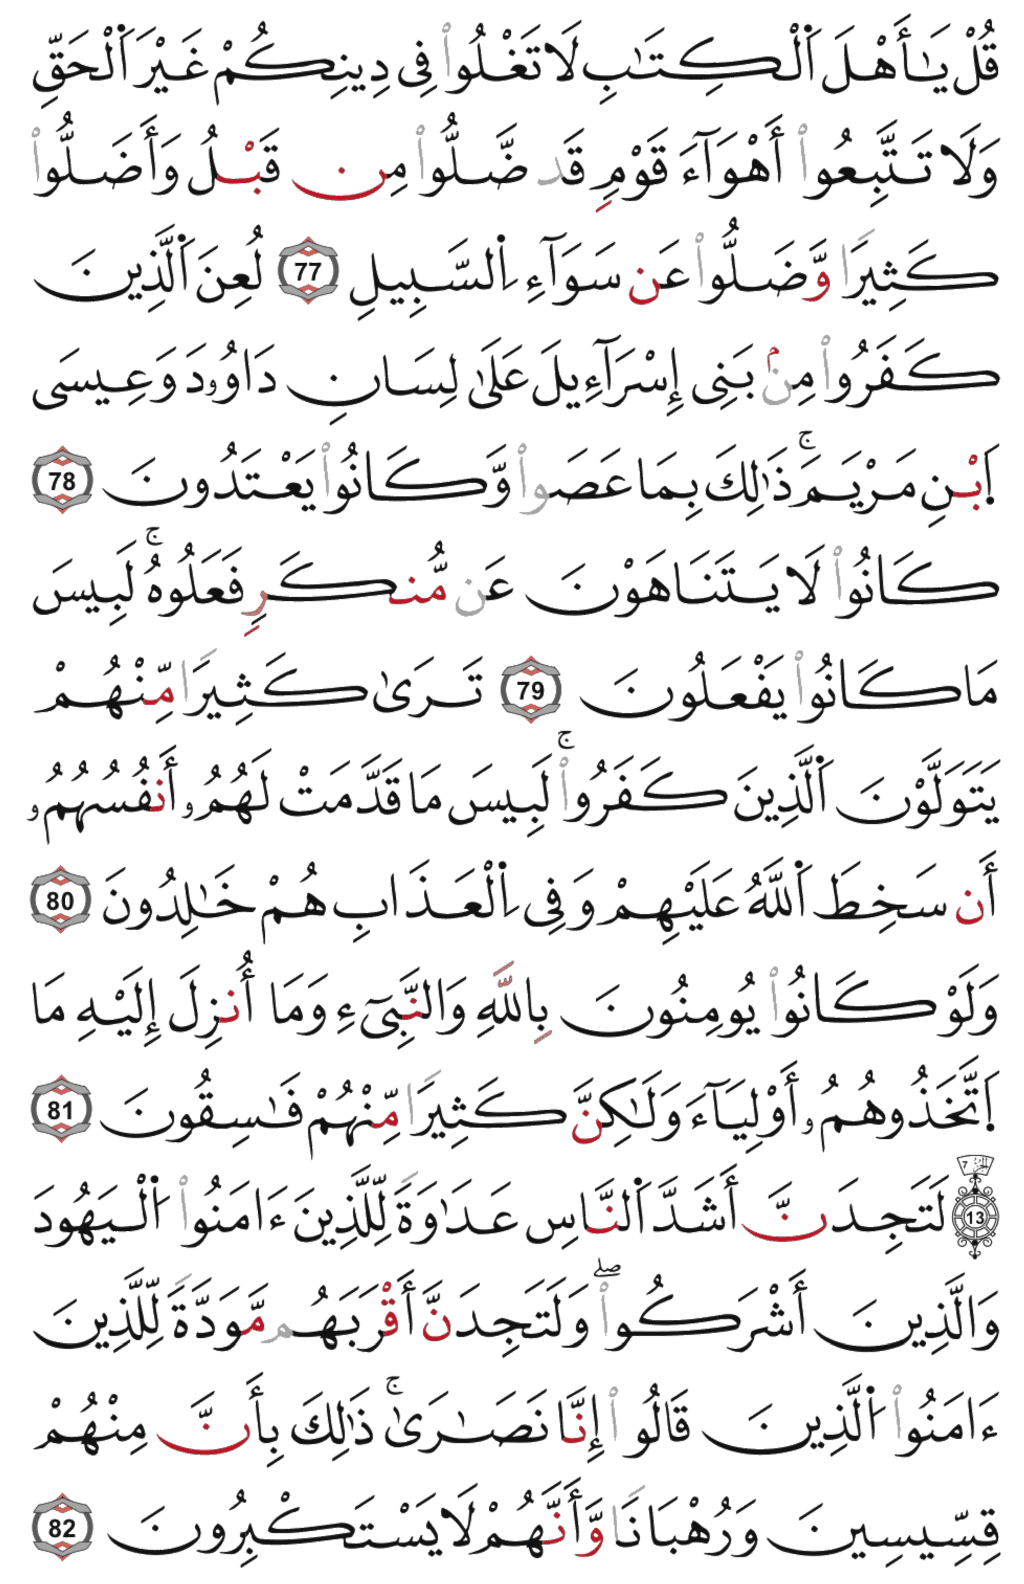 قُلْ يَـٰٓأَهْلَ اَ۬لْكِتَـٰبِ لَا تَغْلُواْ فِى دِينِكُمْ غَيْرَ اَ۬لْحَقِّ
وَلَا تَتَّبِعُواْ أَهْوَآءَ قَوْمٍ قَد ضَّلُّواْ مِن قَبْلُ وَأَضَلُّواْ
كَثِيرًا وَّضَلُّواْ عَن سَوَآءِ اِ۬لسَّبِيلِ 77 لُعِنَ اَ۬لَّذِينَ
كَفَرُواْ مِنۢ بَنِى إِسْرَآءِيلَ عَلَىٰ لِسَانِ دَاوُۥدَ وَعِيسَى
اَ۪بْنِ مَرْيَمَ ۚ ذَٰلِكَ بِمَا عَصَواْ وَّكَانُواْ يَعْتَدُونَ 78
كَانُواْ لَا يَتَنَاهَوْنَ عَن مُّنكَرٍ فَعَلُوهُ ۚ لَبِيسَ
مَا كَانُواْ يَفْعَلُونَ 79 تَرَىٰ كَثِيرًا مِّنْهُمْ
يَتَوَلَّوْنَ اَ۬لَّذِينَ كَفَرُواْ ۚ لَبِيسَ مَا قَدَّمَتْ لَهُمُۥ أَنفُسُهُمُۥ
أَن سَخِطَ اَ۬للَّهُ عَلَيْهِمْ وَفِى اِ۬لْعَذَابِ هُمْ خَـٰلِدُونَ 80
وَلَوْ كَانُواْ يُومِنُونَ بِاللَّهِ وَالنَّبِىٓءِ وَمَا أُنزِلَ إِلَيْهِ مَا
اَ۪تَّخَذُوهُمُۥ أَوْلِيَآءَ وَلَـٰكِنَّ كَثِيرًا مِّنْهُمْ فَـٰسِقُونَ 81
الجزء 7 13 لَتَجِدَنَّ أَشَدَّ اَ۬لنَّاسِ عَدَٰوَةً لِّلَّذِينَ ءَامَنُواْ اُ۬لْيَهُودَ
وَالَّذِينَ أَشْرَكُواْ ۖ وَلَتَجِدَنَّ أَقْرَبَهُم مَّوَدَّةً لِّلَّذِينَ
ءَامَنُواْ اُ۬لَّذِينَ قَالُواْ إِنَّا نَصَـٰرَىٰ ۚ ذَٰلِكَ بِأَنَّ مِنْهُمْ
قِسِّيسِينَ وَرُهْبَانًا وَّأَنَّهُمْ لَا يَسْتَكْبِرُونَ 82